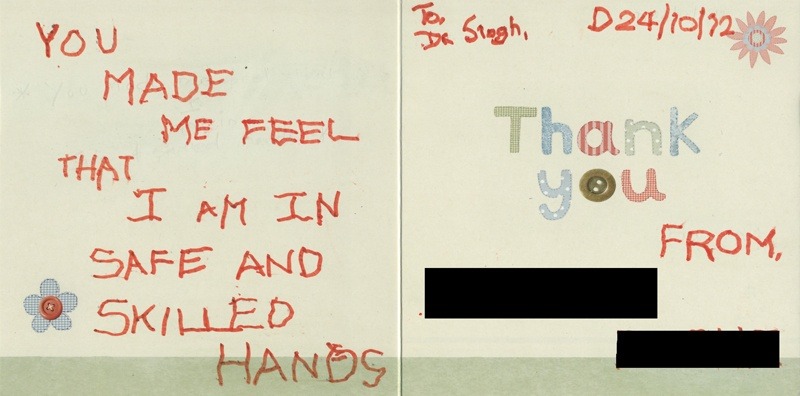 YOU
MADE
ME FEEL
THAT
I AM IN
SAFE AND
SKILLED
HANDS
To,
Dr Singh,
D24/10/12
Thank
you
FROM,